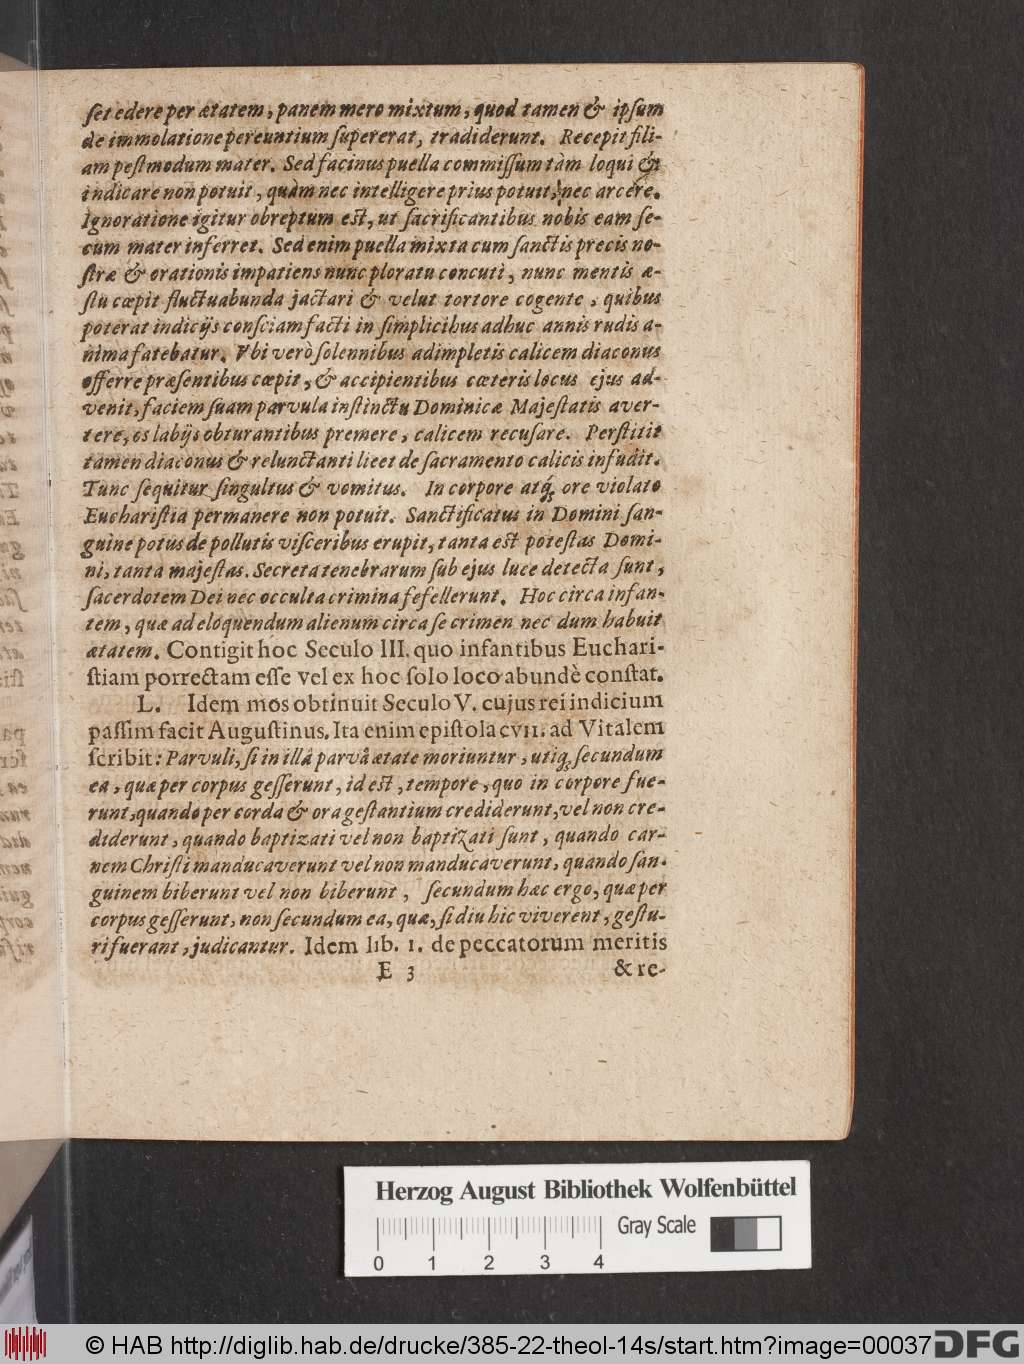 ſet edere per ætatem, panem mero mixtum, quod tamen & ipſum
de immolatione pereuntium ſupererat, tradiderunt. Recepit fili-
am peſtmodum mater. Sed facinus puella commiſſum tàm loqui &
indicare non potuit, quàm nec intelligere prius potuit, nec arcére.
Ignoratione igitur obreptum eſt, ut ſacrificantibus nobis eam ſe-
cum mater inferret. Sed enim puella mixta cum ſanctis precis no-
ſtræ & orationis impatiens nunc ploratu concuti, nunc mentis æ-
ſtu cœpit fluctuabunda jactari & velut tortore cogente, quibus
poterat indicijs conſciam facti in ſimplicibus adhuc annis rudis a-
nima fatebatur. Vbi verò ſolennibus adimpletis calicem diaconus
offerre præſentibus cœpit, & accipientibus cæteris locus ejus ad-
venit, faciem ſuam parvula inſtinctu Dominicæ Majeſtatis aver-
tere, os labijs obturantibus premere, calicem recuſare. Perſtitit
tamen diaconus & relunctanti licet de ſacramento calicis infudit.
Tunc ſequitur ſingultus & vomitus. In corpore atq́; ore violato
Euchariſtia permanere non potuit. Sanctificatus in Domini ſan-
guine potus de pollutis viſceribus erupit, tanta eſt poteſtas Domi-
ni, tanta majeſtas. Secreta tenebrarum ſub ejus luce detecta ſunt,
ſacerdotem Dei nec occulta crimina fefellerunt. Hoc circa infan-
tem, quæ ad eloquendum alienum circa ſe crimen nec dum habuit
ætatem. Contigit hoc Seculo III. quo infantibus Euchari-
ſtiam porrectam eſſe vel ex hoc ſolo loco abundè conſtat.
L. Idem mos obtinuit Seculo V. cujus rei indicium
paſſim facit Auguſtinus. Ita enim epiſtola cvII. ad Vitalem
ſcribit: Parvuli, ſi in illâ parvâ ætate moriuntur, utiq; ſecundum
ea, quæ per corpus geſſerunt, id eſt, tempore, quo in corpore fue-
runt, quando per corda & ora geſtantium crediderunt, vel non cre-
diderunt, quando baptizati vel non baptizati ſunt, quando car-
nem Chriſti manducaverunt vel non manducaverunt, quando ſan-
guinem biberunt vel non biberunt, ſecundum hæc ergo, quæ per
corpus geſſerunt, non ſecundum ea, quæ, ſi diu hic viverent, geſtu-
ri fuerant, judicantur. Idem lib. 1. de peccatorum meritis
E 3 & re-
Herzog August Bibliothek Wolfenbüttel
Gray Scale
0 1 2 3 4
© HAB http://diglib.hab.de/drucke/385-22-theol-14s/start.htm?image=00037 DFG